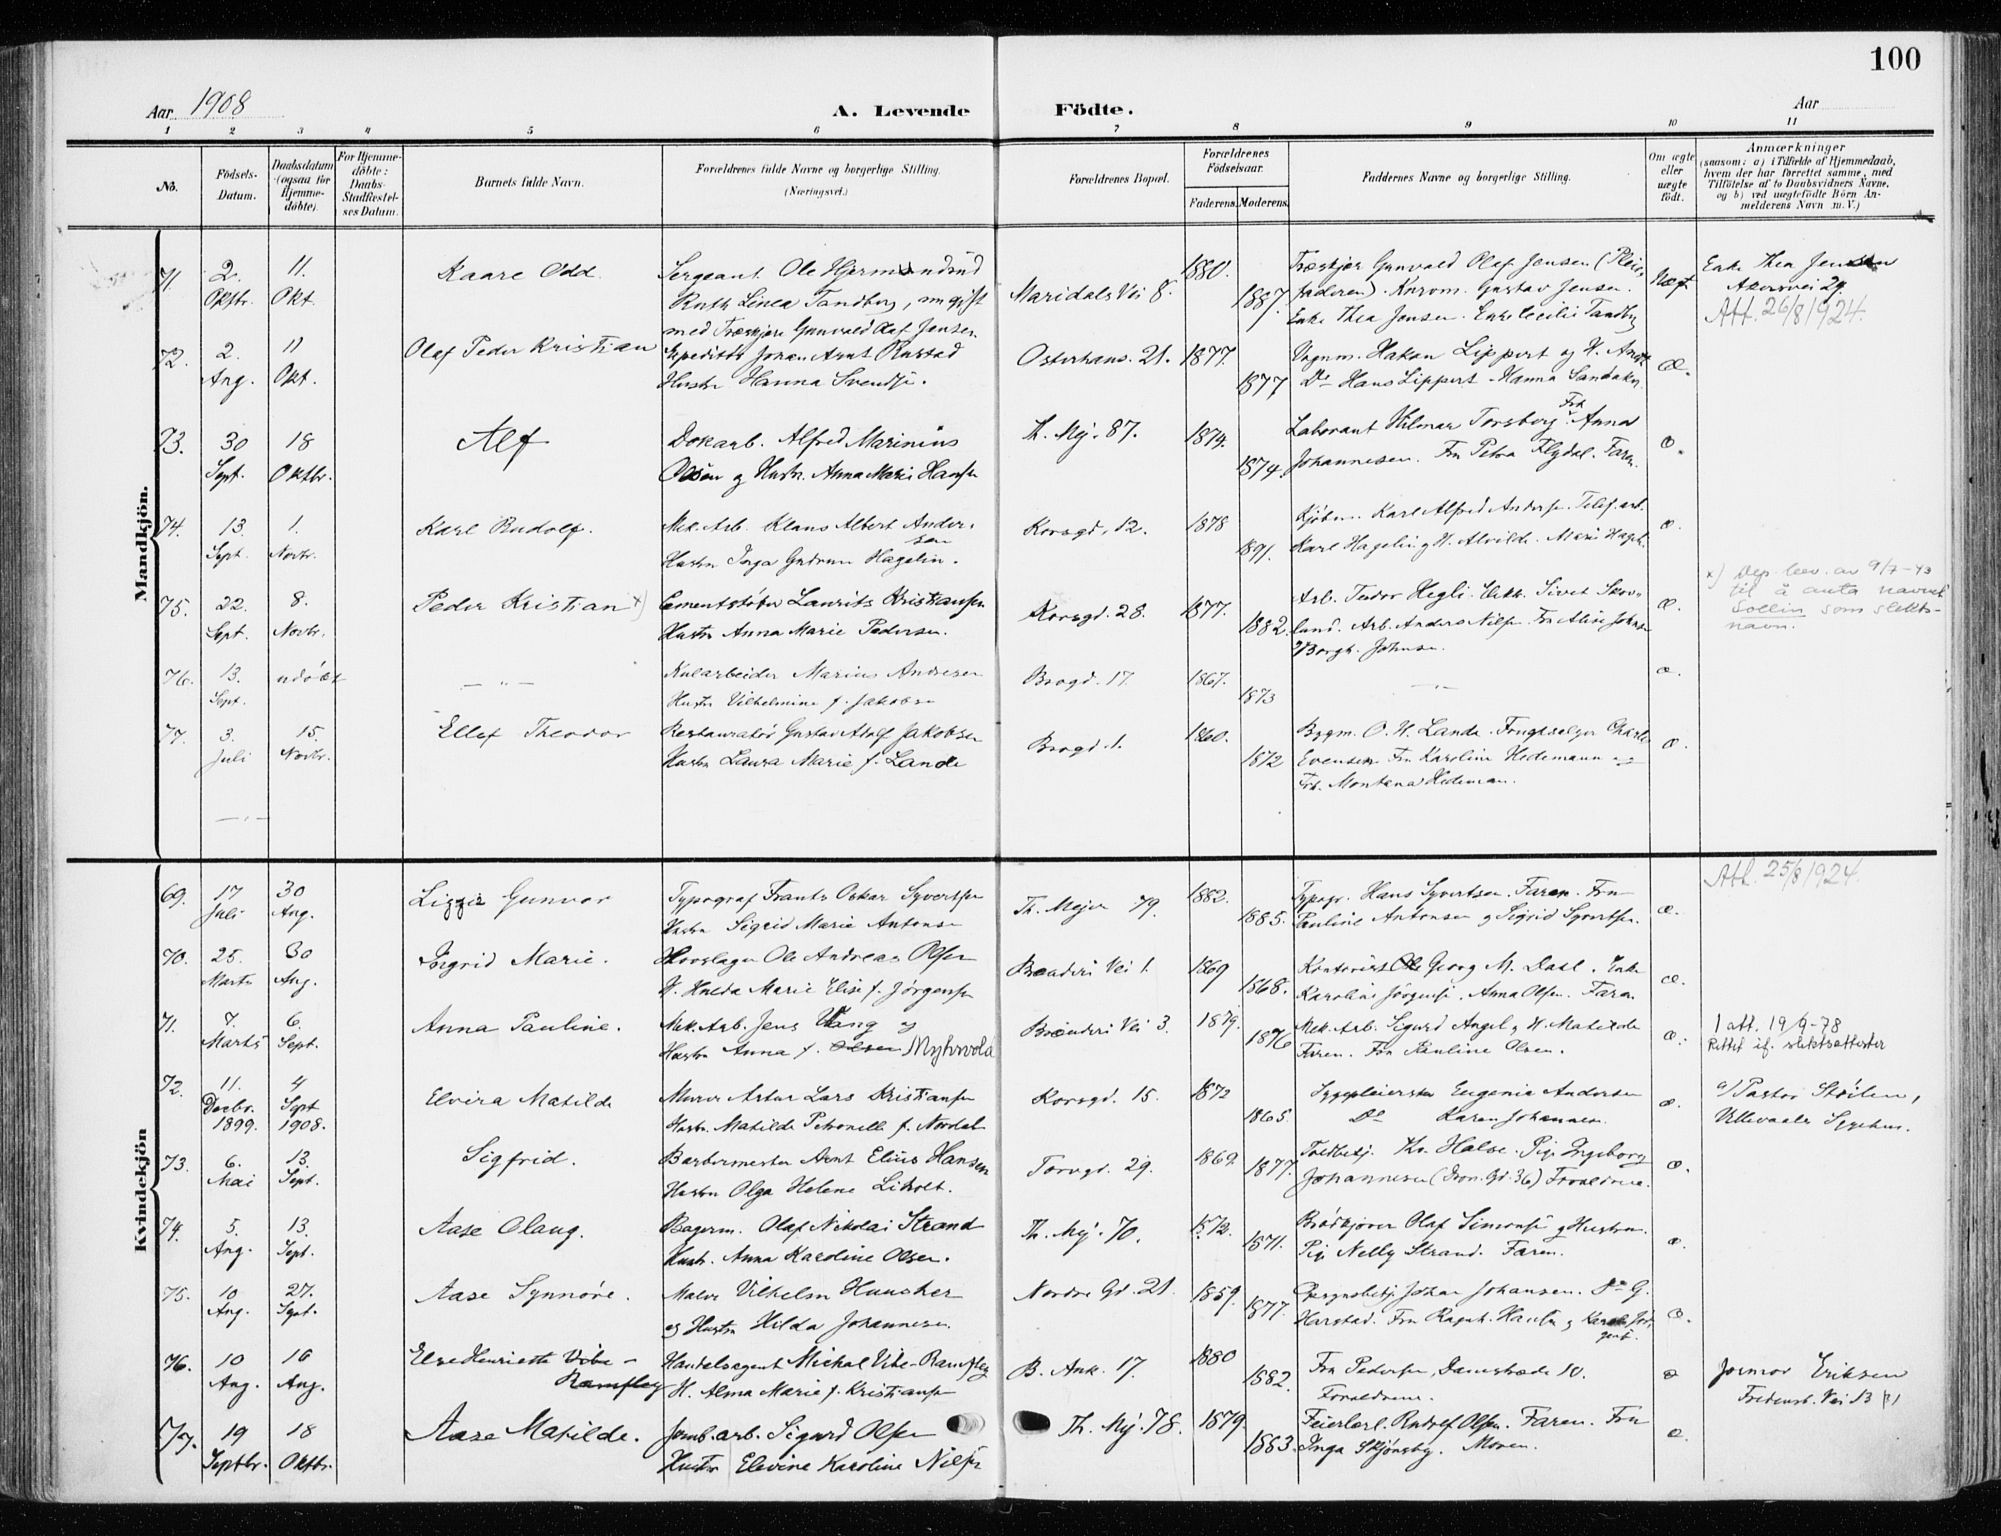 100
Aar 1908
A. Levende Födte.
Aar
1 2 3 4 5 6 7 8 9 10 11
No.
Födsels-Datum.
Daabsdatum (ogsaa for Hjemme-döbte).
For Hjemme-döbte: Daabs-Stadfæstel-ses Datum.
Barnets fulde Navn.
Forældrenes fulde Navne og borgerlige Stilling.
(Næringsvei.)
Forældrenes Bopæl.
Forældrenes Födselsaar.
Faderens. Moderens.
Faddernes Navne og borgerlige Stilling.
Om ægte eller uægte födt.
Anmærkninger
(saasom: a) i Tilfælde af Hjemmedaab, hvem der har forrettet samme, med Tilföielse af to Daabsvidners Navne, og b) ved uægtefödte Börn An-melderens Navn m. V.)
Mandkjön.
71. 2. Oktbr. 11. Okt. Kaare Odd. Sergeant Ole Hjermundrud
Ruth Linea Tandberg, nu gift
med Træskjær Gunvald Olaf Jensen
Maridals Vei 8. 1880. 1887.
Træskjær Gunvald Olaf Jensen (Pleie-
faderen). Gustav Jensen.
Enke Thea Jensen. Enke Cecilie Tandbg
Uægt. Enke Thea Jensen
Akersvei 29.
Att. 26/8 1924.
72. 2. Aug. 11 Okt. Olaf Peder Kristian Expeditör Johan Arnt Rustad
Hustr Hanna Svendsen.
Osterhaus. 21. 1877. 1877
Vognm. Hakon Lippert og H.
Do Hans Lippert. Hanna Sandaker
Æ.
73. 30 Sept. 18 Oktbr. Alf Dokarb. Alfred Marinius
Olsen og Hustr. Anna Marie Hansen
Th. Mej. 87. 1874. 1874.
Laborant Hilmar Torsborg. Frk Anna
Johannesen. Fru Petra Flygdal. Faren.
æ.
74. 13. Sept. 1. Novbr. Karl Rudolf. Mek. Arb. Klaus Albert Ander-
sen
Hustru Inga Gudrun Hagelin.
Korsgd. 12. 1878 1891.
Kjöbm. Karl Alfred Andersen. Telef. arb.
Karl Hagelin og H. Alvilde. Marie Hagel.
æ.
75. 22. Sept. 8. Novbr. Peder Kristian x) Cementstöber Laurits Kristiansen
Hustr Anna Marie Pedersen.
Korsgd. 28. 1877. 1882.
Arb. Teodor Hegli. Sivert Skov-
lund. Arb. Anders Nilsen. Fru Aline Johnsen
Borgh. Johnsen.
æ.
x) Dep. bev. av 9/7-43
til å anta navnet
Sollin som slekts-
navn.
76. 13. Sept. udöbt — „ — Kularbeider Marius Andresen
Hustr Vilhelmine f. Jakobsen
Brogd. 17. 1867. 1873
æ.
77. 3. Juli 15. Novbr. Ellef Theodor Restauratör Gustav Adolf Jakobsen
Hustru Laura Marie f. Lande
Brogd. 1. 1860. 1872
Bygm. O. H. Lande. Frugtselger Charles
Evensen Fru Karoline Hedemann og
Frk. Montana Hedeman.
æ.
Kvindekjön
Att. 25/8 1924.
69. 17 Juli 30 Aug. Lizzie Gunvor Typograf Frants Oskar Syvertsen
Hustru Sigrid Marie Antonsen
Th. Mejer 79. 1882. 1885.
Typogr. Hans Syvertsen. Faren. Fru
Pauline Antonsen og Sigrid Syvertsen.
æ.
70. 25. Marts 30 Aug. Ingrid Marie. Hovslager Ole Andreas Olsen
H. Hulda Marie Elise f. Jörgensen
Brænderi Vei 1. 1869 1868.
Kontorist Georg M. Dahl. Enke
Karoline Jörgensen. Anna Olsen. Faren.
æ.
71. 7. Marts 6. Sept. Anna Pauline. Mek. Arb. Jens Vang og
Hustru Anna f. Olsen Myhrvold
Brænderi Vei 3. 1879. 1876
Mek. Arb. Sigurd Angel og H. Matilde
Faren. Fru Pauline Olsen.
æ.
1 att. 19/9-78
Rettet if. slektsattester
72. 11. Decbr. 1899. 4 Sept 1908. Elvira Matilde Murer Artur Lars Kristiansen
Hustr. Matilde Petronelle f. Nordal
Korsgd. 15. 1872 1865.
Sygepleierske Eugenia Andersen
Do Karen Johannesen
æ.
a) Pastor Stöilen,
Ullevaals Sygehus.
73. 6. Mai 13. Sept. Sigfrid. Barbermester Arnt Elius Hansen
Hustru Olga Helene Liholt.
Torvgd. 29. 1869. 1877.
Toldbetj. Kr. Halse. Pige Ingeborg
Johannesen (Tron. Gd. 36) Forældrene.
æ.
74. 5. Aug. 13. Sept. Aase Olaug. Bagerm. Olaf Nikolai Strand
Hustr. Anna Karoline Olsen.
Th. Mej. 70. 1872. 1871.
Brödkjörer Olaf Simonsen og Hustru.
Pige Nelly Strand. Faren.
æ.
75. 10 Aug. 27. Sept. Aase Synnöve. Maler Vilhelm Huuscher
og Hustru Hilda Johannesen.
Nordre Gd. 21. 1859. 1877.
Johan Johansen. Do G.
Harstad. Fru Ragnh. Hansen og
æ.
76. 10 Aug. 16 Aug. Else Henriette Vibe-
Ramsley
Handelsagent Michal Vibe-Ramsley
H. Alma Marie f. Kristiansen
B. Ank. 17. 1880 1882.
Fru Pedersen, Damstræde 10.
Forældrene.
æ
Jormor Eriksen
Fredensb. Vei 13
77. 19 Septbr. 18 Oktbr. Aase Matilde. Jernb. arb. Sigurd Olsen
Hustr Elevine Karoline Nilsen
Th. Mej. 78. 1879. 1883.
Feierlærl. Rudolf Olsen. Faren. Fru
Inga Skjönsby. Moren.
æ.